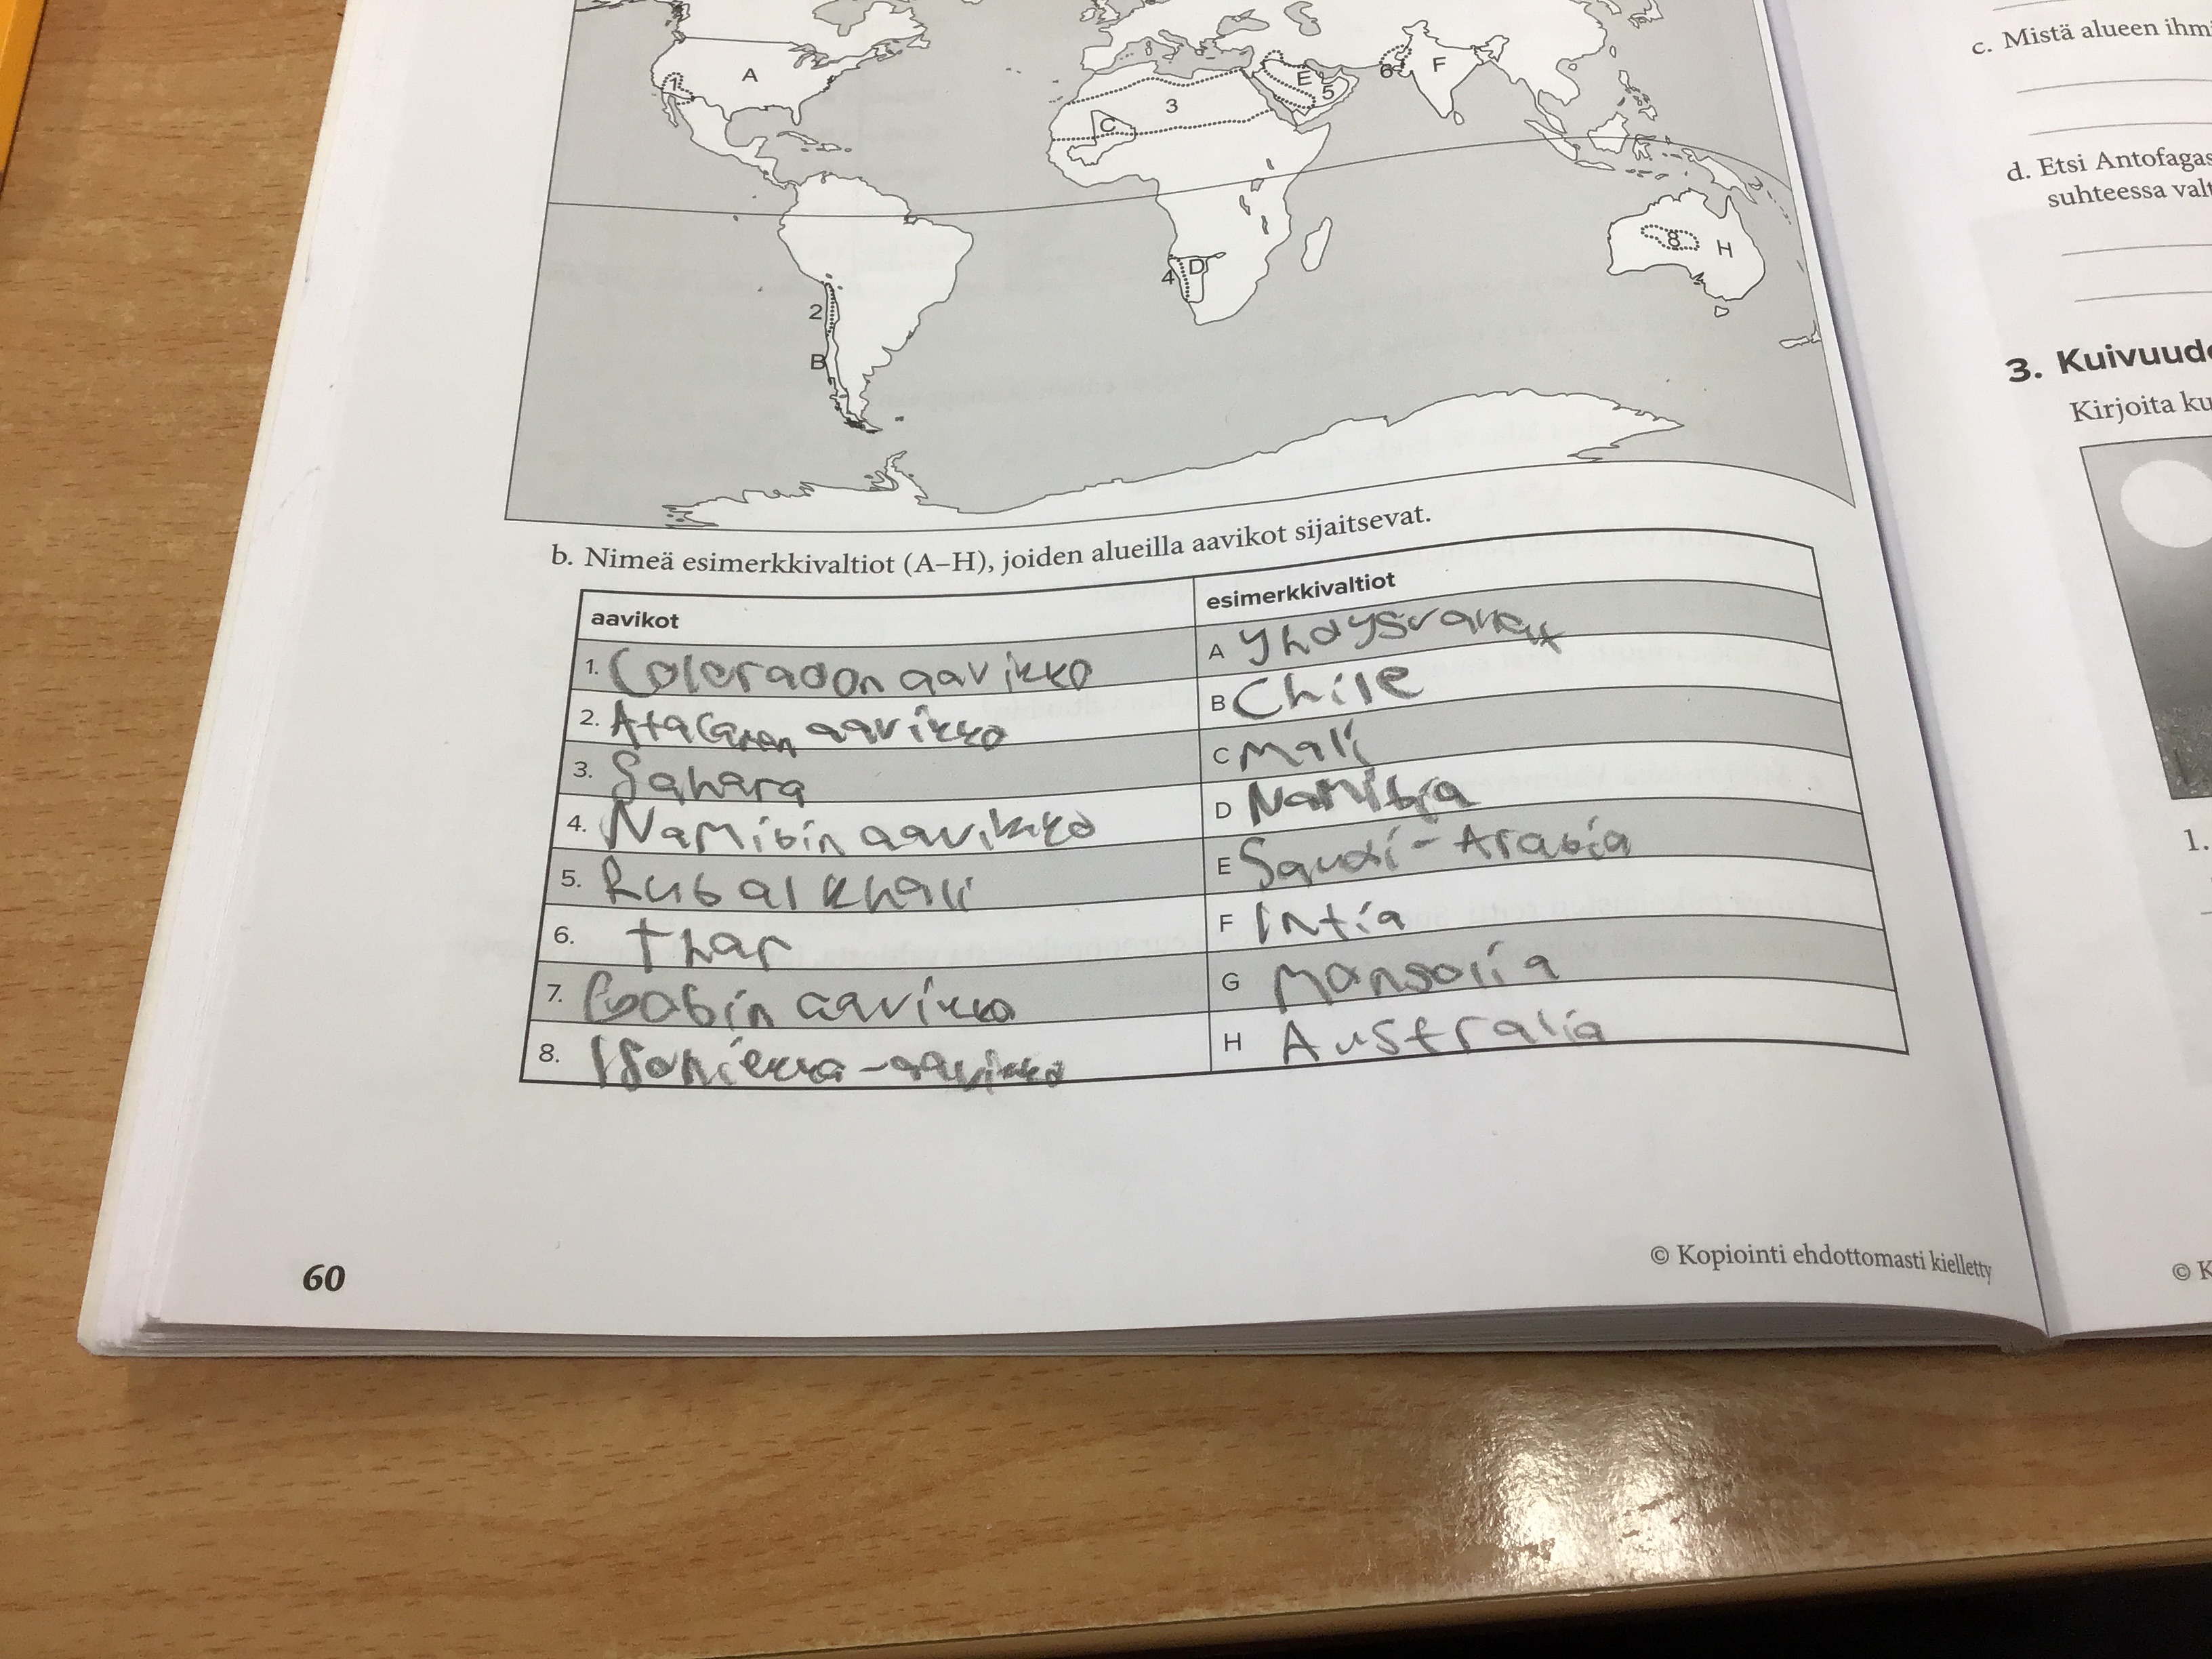 A
1
B
2
C
3
4
D
E
5
6
F
8
H
b. Nimeä esimerkkivaltiot (A–H), joiden alueilla aavikot sijaitsevat.
aavikot
esimerkkivaltiot
1. Coloradon aavikko
A Yhdysvallat
2. Atacaman aavikko
B Chile
3. Sahara
C Mali
4. Namibin aavikko
D Namibia
5. Rub al Khali
E Saudi-Arabia
6. Thar
F Intia
7. Gobin aavikko
G Mongolia
8. Isohiekka-aavikko
H Australia
60
© Kopiointi ehdottomasti kielletty
c. Mistä alueen
d. Etsi
suhteessa
3.
Kirjoita
1.
©